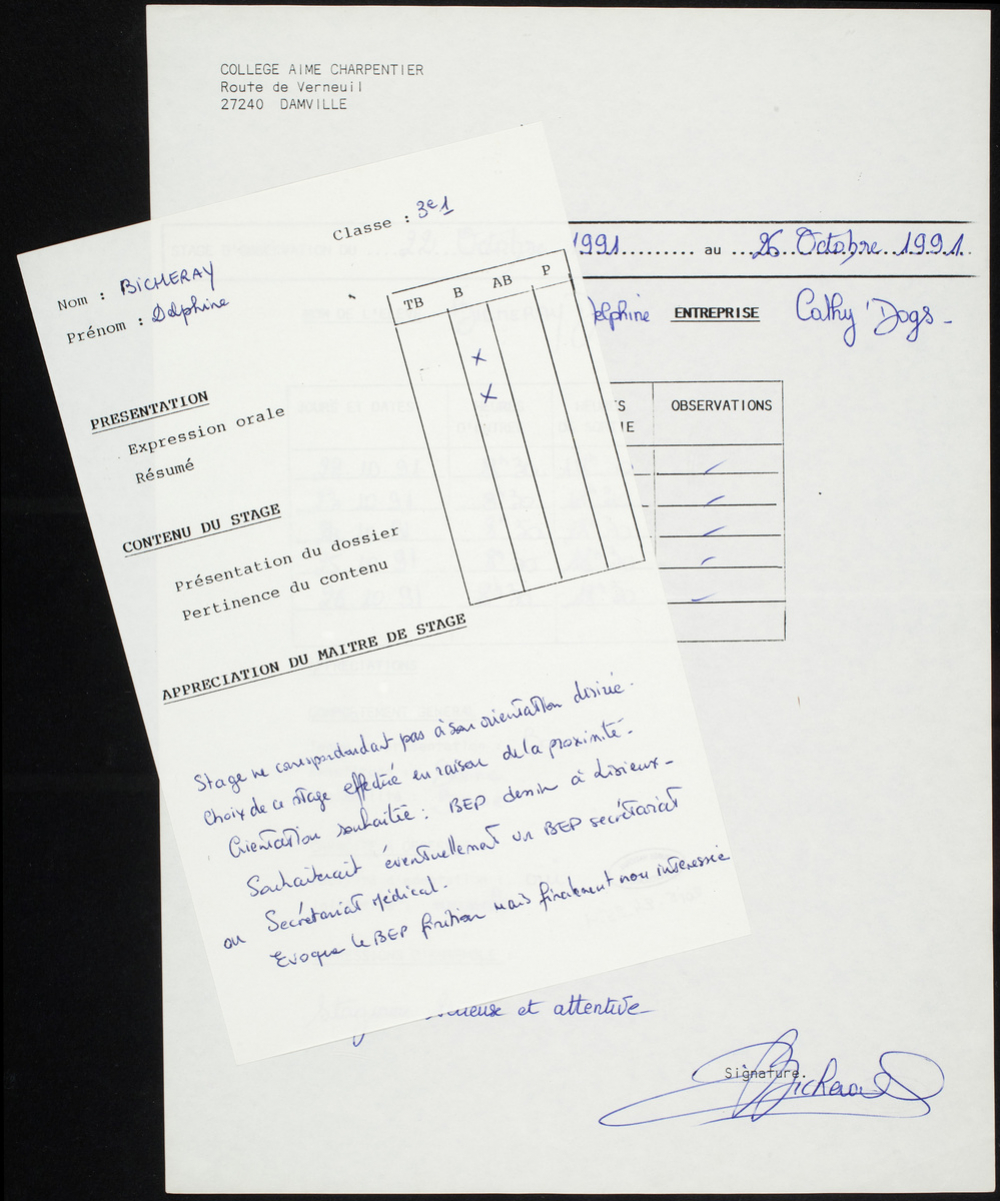 COLLEGE AIME CHARPENTIER
Route de Verneuil
27240 DAMVILLE
1991 au 26 Octobre 1991
elphine ENTREPRISE Cathy'Dogs
OBSERVATIONS
Classe : 3e1
Nom : BICHERAY
Prénom : Delphine
TB B AB P
PRESENTATION
Expression orale
Résumé
CONTENU DU STAGE
Présentation du dossier
Pertinence du contenu
APPRECIATION DU MAITRE DE STAGE
Stage ne correspondant pas à son orientation désirée.
Choix de ce stage effectué en raison de la proximité.
Orientation souhaitée : BEP dessin à Lisieux
Souhaiterait éventuellement un BEP secrétariat
ou Secrétariat Médical.
Evoque le BEP finition mais finalement non intéressée
et attentive
Signature.